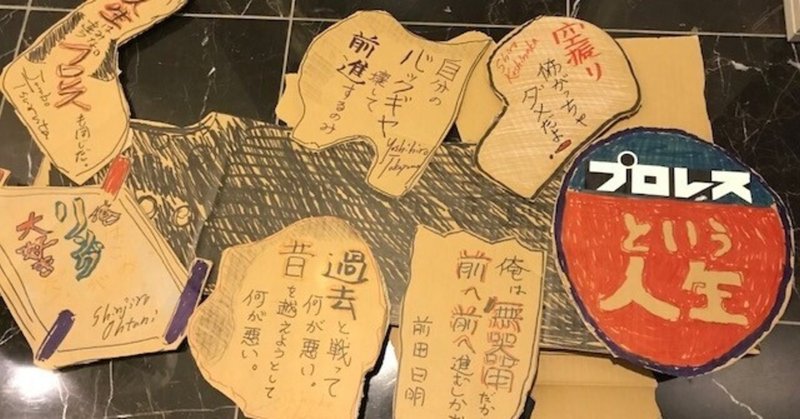 プロレス
も同じだ。
Jumbo
Tsuruta
自分の
バックギヤ
壊して
前進するのみ
Yoshihiro
空振り
怖がっちゃ
ダメだよ!
Shiro
プロレス
という
人生
俺
リングが
大好き
Shinjiro
Ohtani
過去と戦って
何が悪い。
昔を越えようとして
何が悪い。
俺は無器用だか
前へ前へ進むしか
前田日明